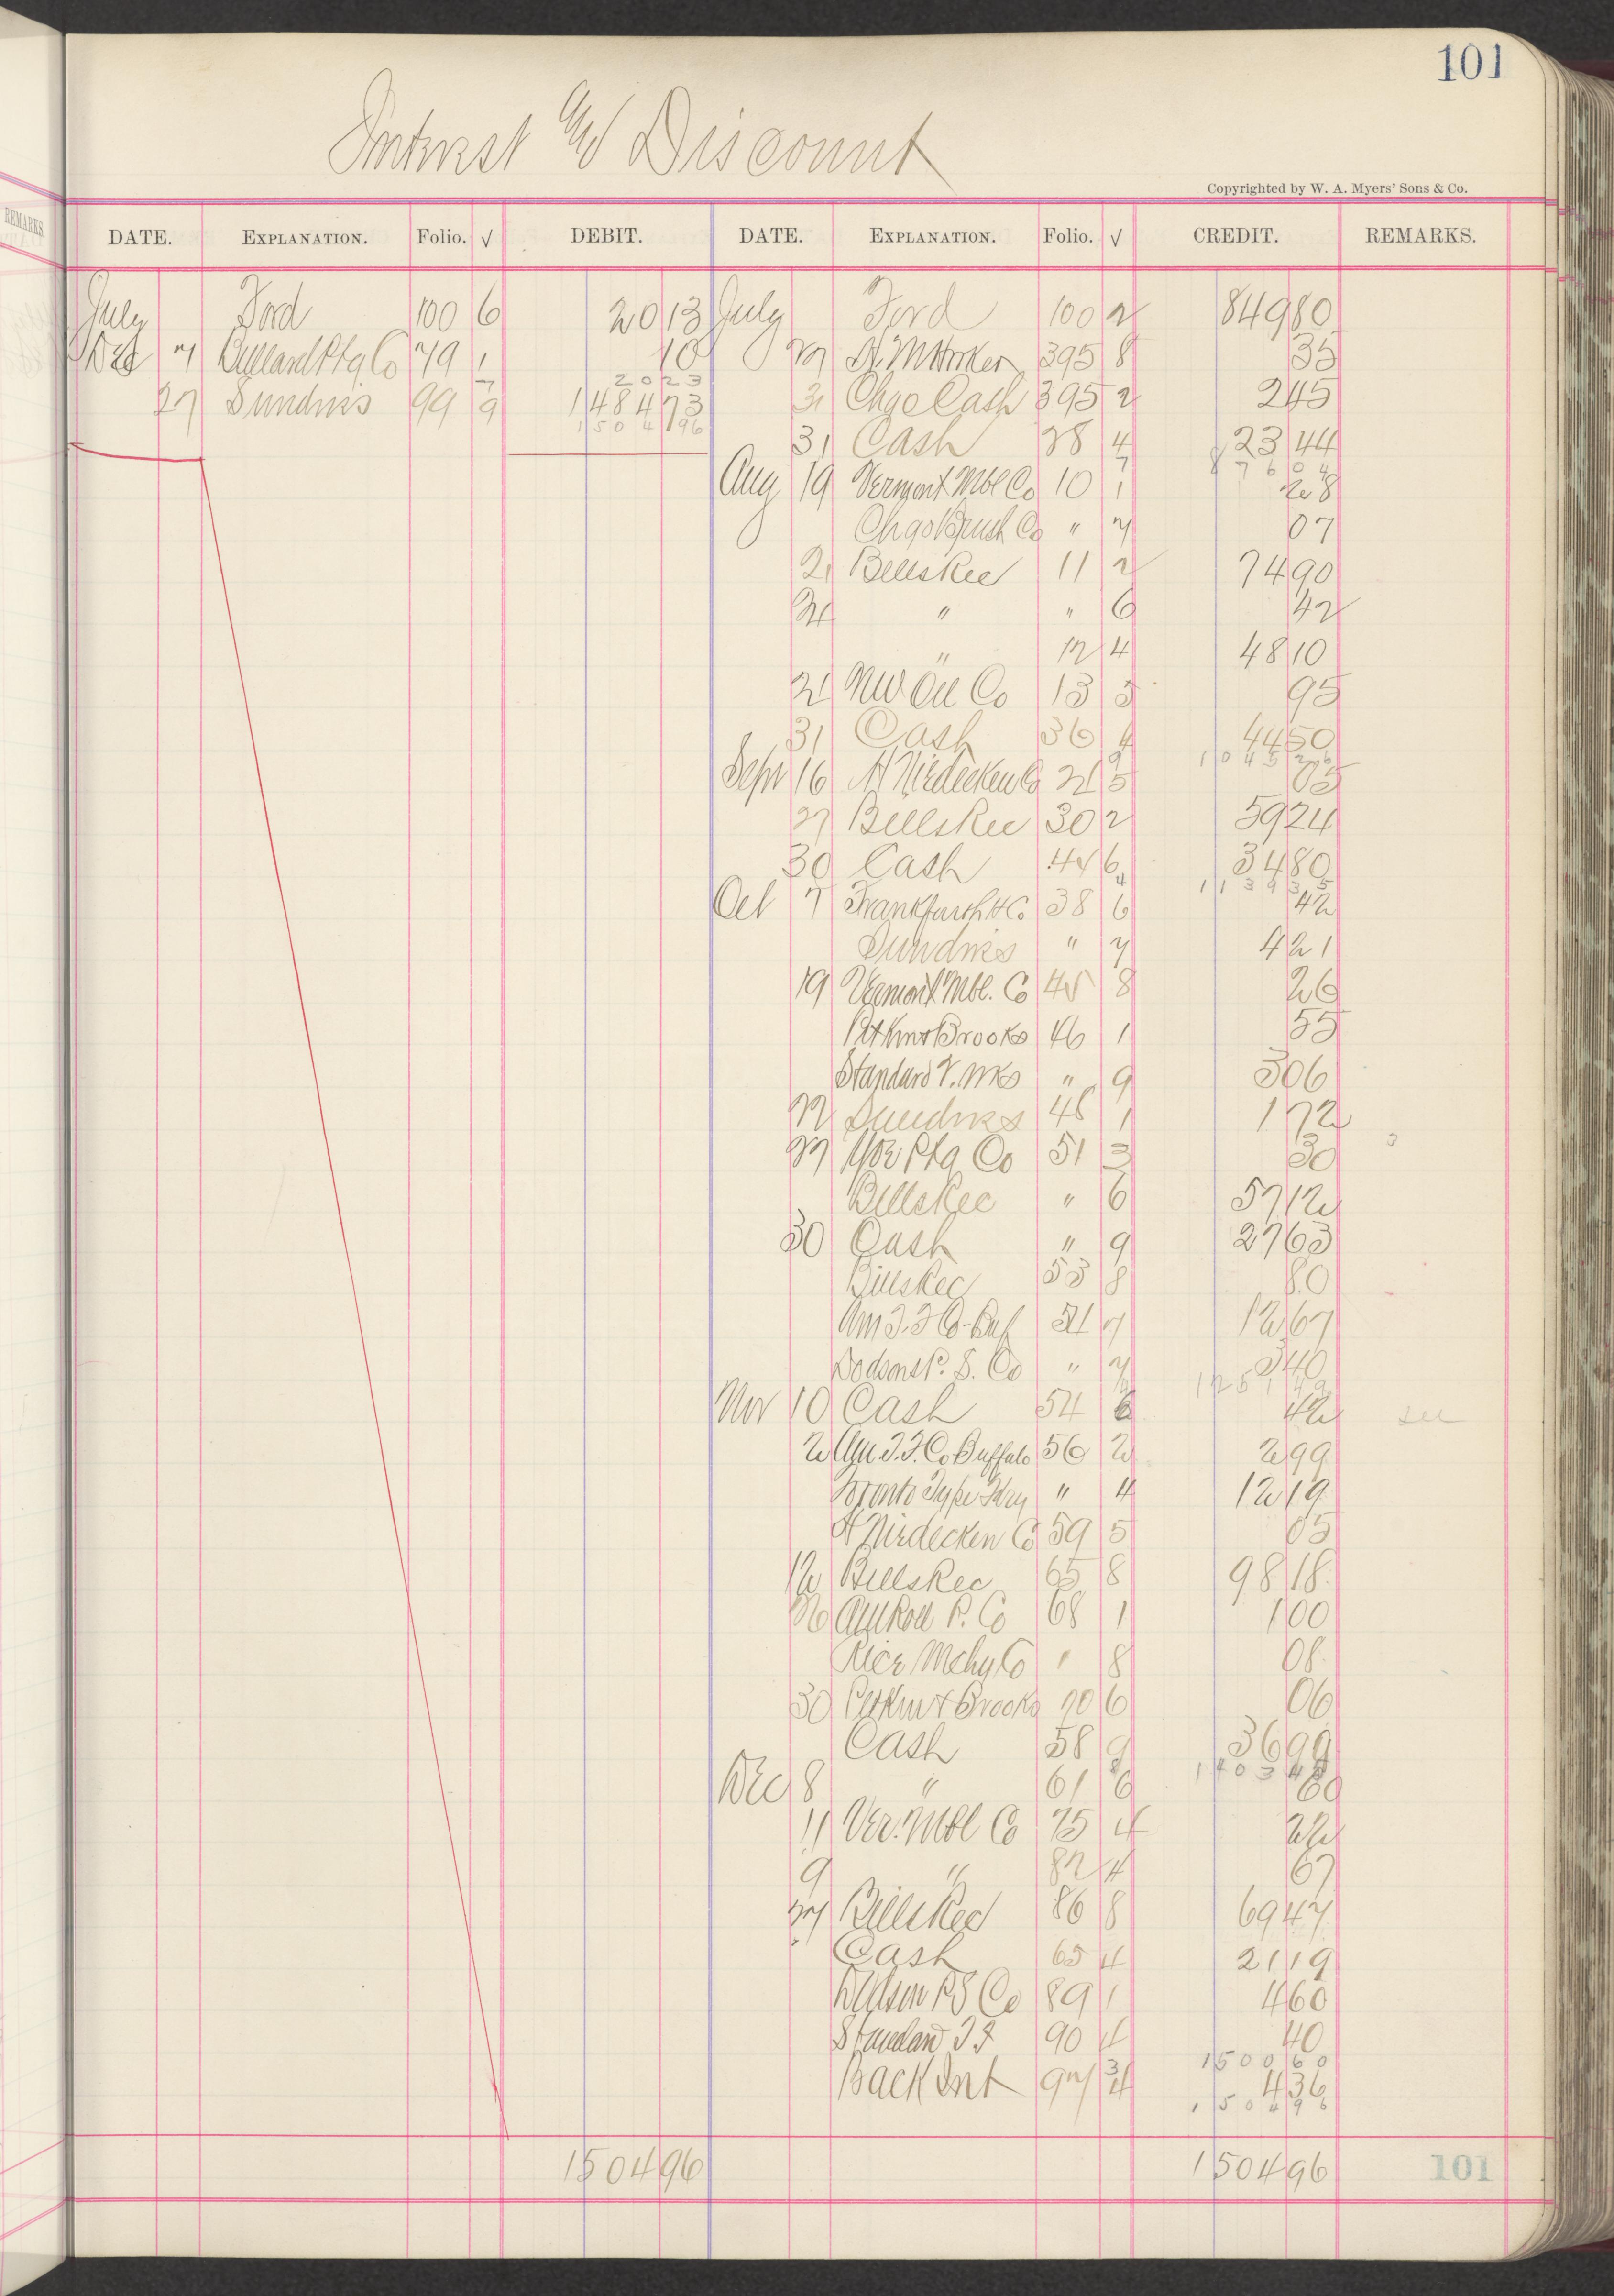 101
Interest & Discount
Copyrighted by W. A. Myers' Sons & Co.
REMARKS.
DATE. EXPLANATION. Folio. √ DEBIT. DATE. EXPLANATION. Folio. √ CREDIT. REMARKS.
July Ford 100 6 20 13 July Ford 100 2 849 80
Dec 7 Ptg Co 79 1 10 27 395 8 35
2023
27 Sundries 99 9 1484 73 31 Chgo Cash 395 2 2 45
1504 96
31 Cash 28 4 23 44
876 04
Aug 19 Vermont Mbl Co 10 1 28
Chgo Brush Co " 7 07
21 Bills Rec 11 2 74 90
21 " " 6 42
" 12 4 48 10
21 NW Oil Co 13 5 95
31 Cash 36 4 44 50
1045 26
Sept 16 A Nirdecken Co 21 5 05
27 Bills Rec 30 2 59 24
30 Cash 44 6 34 80
1139 35
Oct 7 Frankfurth H Co 38 6 42
Sundries " 7 4 21
19 Vermont Mbl. Co 45 8 26
Perkins & Brooks 46 1 55
Standard T. " 9 3 06
22 Sundries 48 1 1 72
27 Ptg Co 51 3 30
Bills Rec " 6 57 12
30 Cash " 9 27 63
Bills Rec 53 8 80
Am T. F Co Buf 54 7 12 67
Dodson P. S. Co " 7 3 40
1251 49
Nov 10 Cash 54 6 42
2 Am T. F. Co Buffalo 56 2 2 99
Toronto Type Fdry " 4 12 19
A Nirdecken Co 59 5 05
12 Bills Rec 65 8 98 18
26 Am Roll P. Co 68 1 1 00
Rice Mchy Co " 8 08
30 Perkins & Brooks 70 6 06
Cash 58 9 36 99
1403 45
Dec 8 " 61 6 60
11 Ver. Mbl Co 75 4 22
9 " 82 4 67
27 Bills Rec 86 8 69 47
Cash 65 4 21 19
Dodson P S Co 89 1 4 60
Standard T F 90 4 40
1500 60
Back Int 97 4 4 36
1504 96
1504 96 1504 96
101